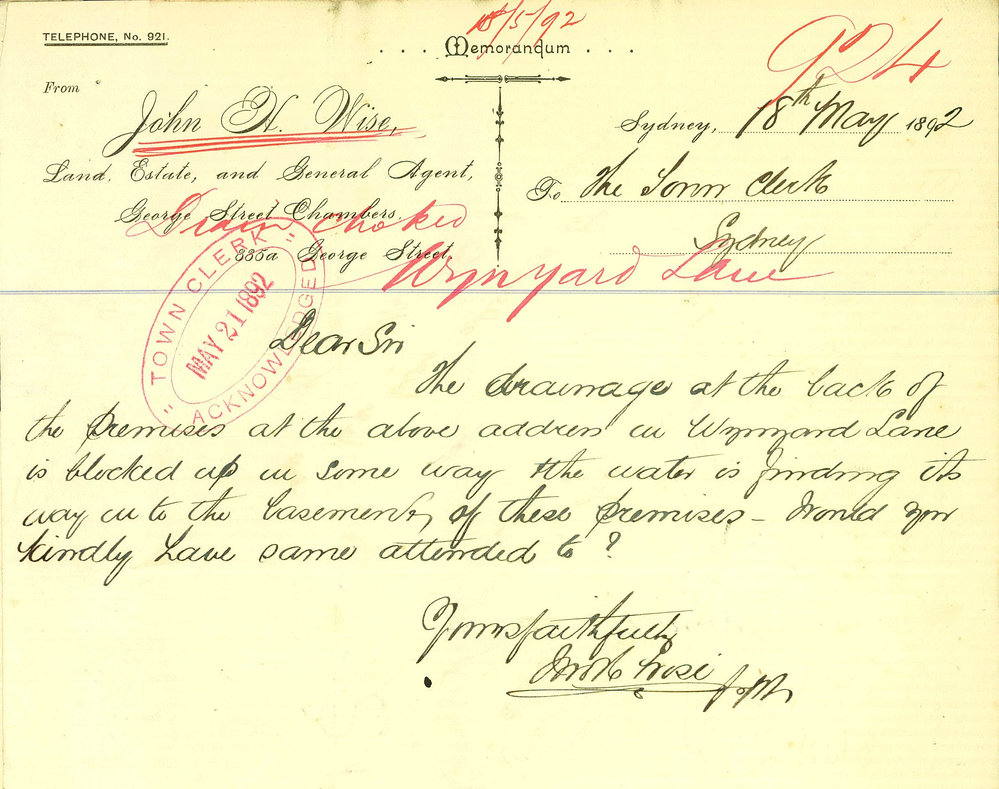 18/5/92
TELEPHONE, No. 921.
. . . Memorandum . . .
924
From
John H. Wise,
Sydney, 18th May 1892
Land, Estate, and General Agent,
To The Town Clerk
George Street Chambers.
Drain choked
335a George Street.
Sydney
Wynyard Lane
"TOWN CLERK"
MAY 21 1892
ACKNOWLEDGED
Dear Sir
The drainage at the back of
the premises at the above address in Wynyard Lane
is blocked up in some way & the water is finding its
way into the basement, of these premises – Would you
kindly have same attended to?
Yours faithfully
Jno H Wise